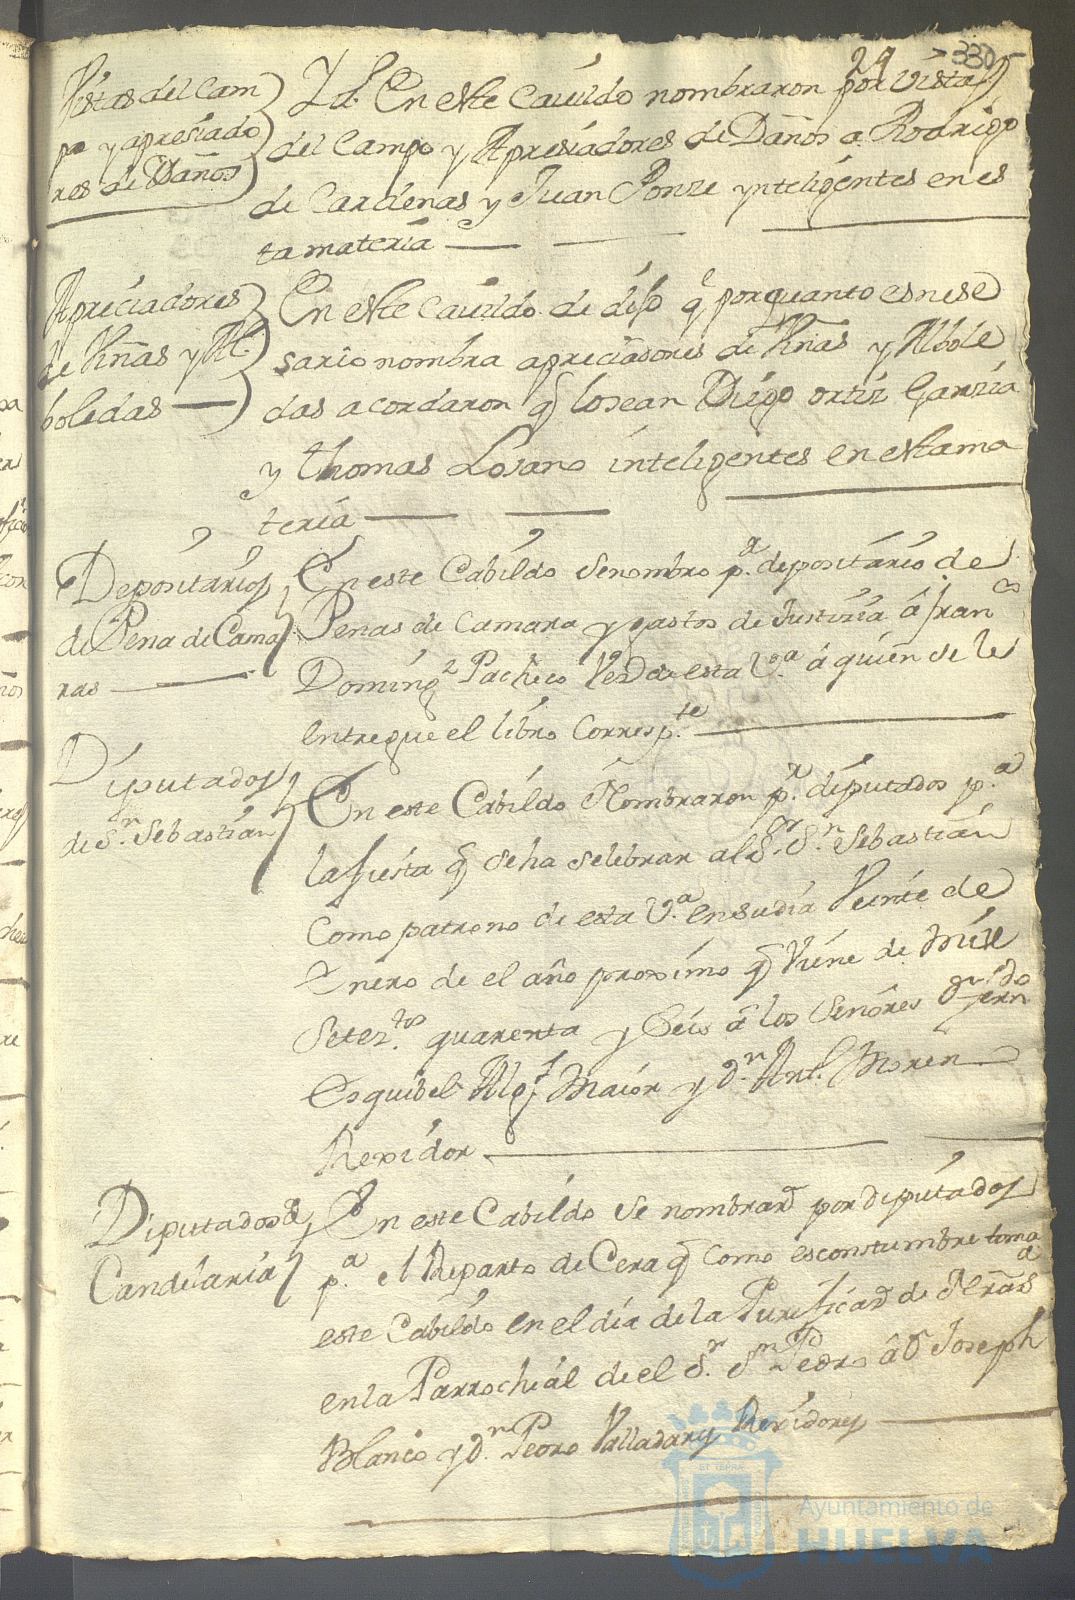 24 330
Vistas del Cam
po y apresiado
res de Daños
Yd. En este Cavildo nombraron por Vistas
del Campo y Apresiadores de Daños a Rodrigo
de Cardenas y Juan Ponze ynteligentes en es
ta materia
Apreciadores
de Viñas y Al
boledas
En este Cavildo de dijo q porquanto es nese
sario nombra apreciadores de Viñas y Albole
das acordaron q lo sean Diego ortiz Garzia
y Thomas Losano inteligentes en esta ma
teria
Depositarios
de Pena de Cama
ras
En este Cabildo se nombro p.ª depositario de
Penas de Camara y gastos de Justizia â fran.co
Doming.z Pacheco Vez.o de esta V.ª â quien se le
entregue el libro Corresp.te
Diputados
de S.n Sebastian
En este Cabildo Nombraron p.r diputados p.ª
la fiesta q se ha selebrar al S.r S.n Sebastian
Como patrono de esta V.ª en su dia Veinte de
Enero de el año proximo q Viene de Mill
Setez.tos quarenta y Seis â los Señores D.n Fern.do
Esquibel Alg.l Maior y D.n Ant.o Moreno
Rexidor
Diputados de
Candelaria
En este Cabildo se nombraron por diputados
p.ª el Reparto de Cera q como es constumbre toma
este Cabildo en el dia de la Purificaon de Nra Sra
en la Parrochial de el S.r S.n Pedro â D Joseph
Blanco y D.n Pedro Valladares Rexidores
Ayuntamiento de
HUELVA